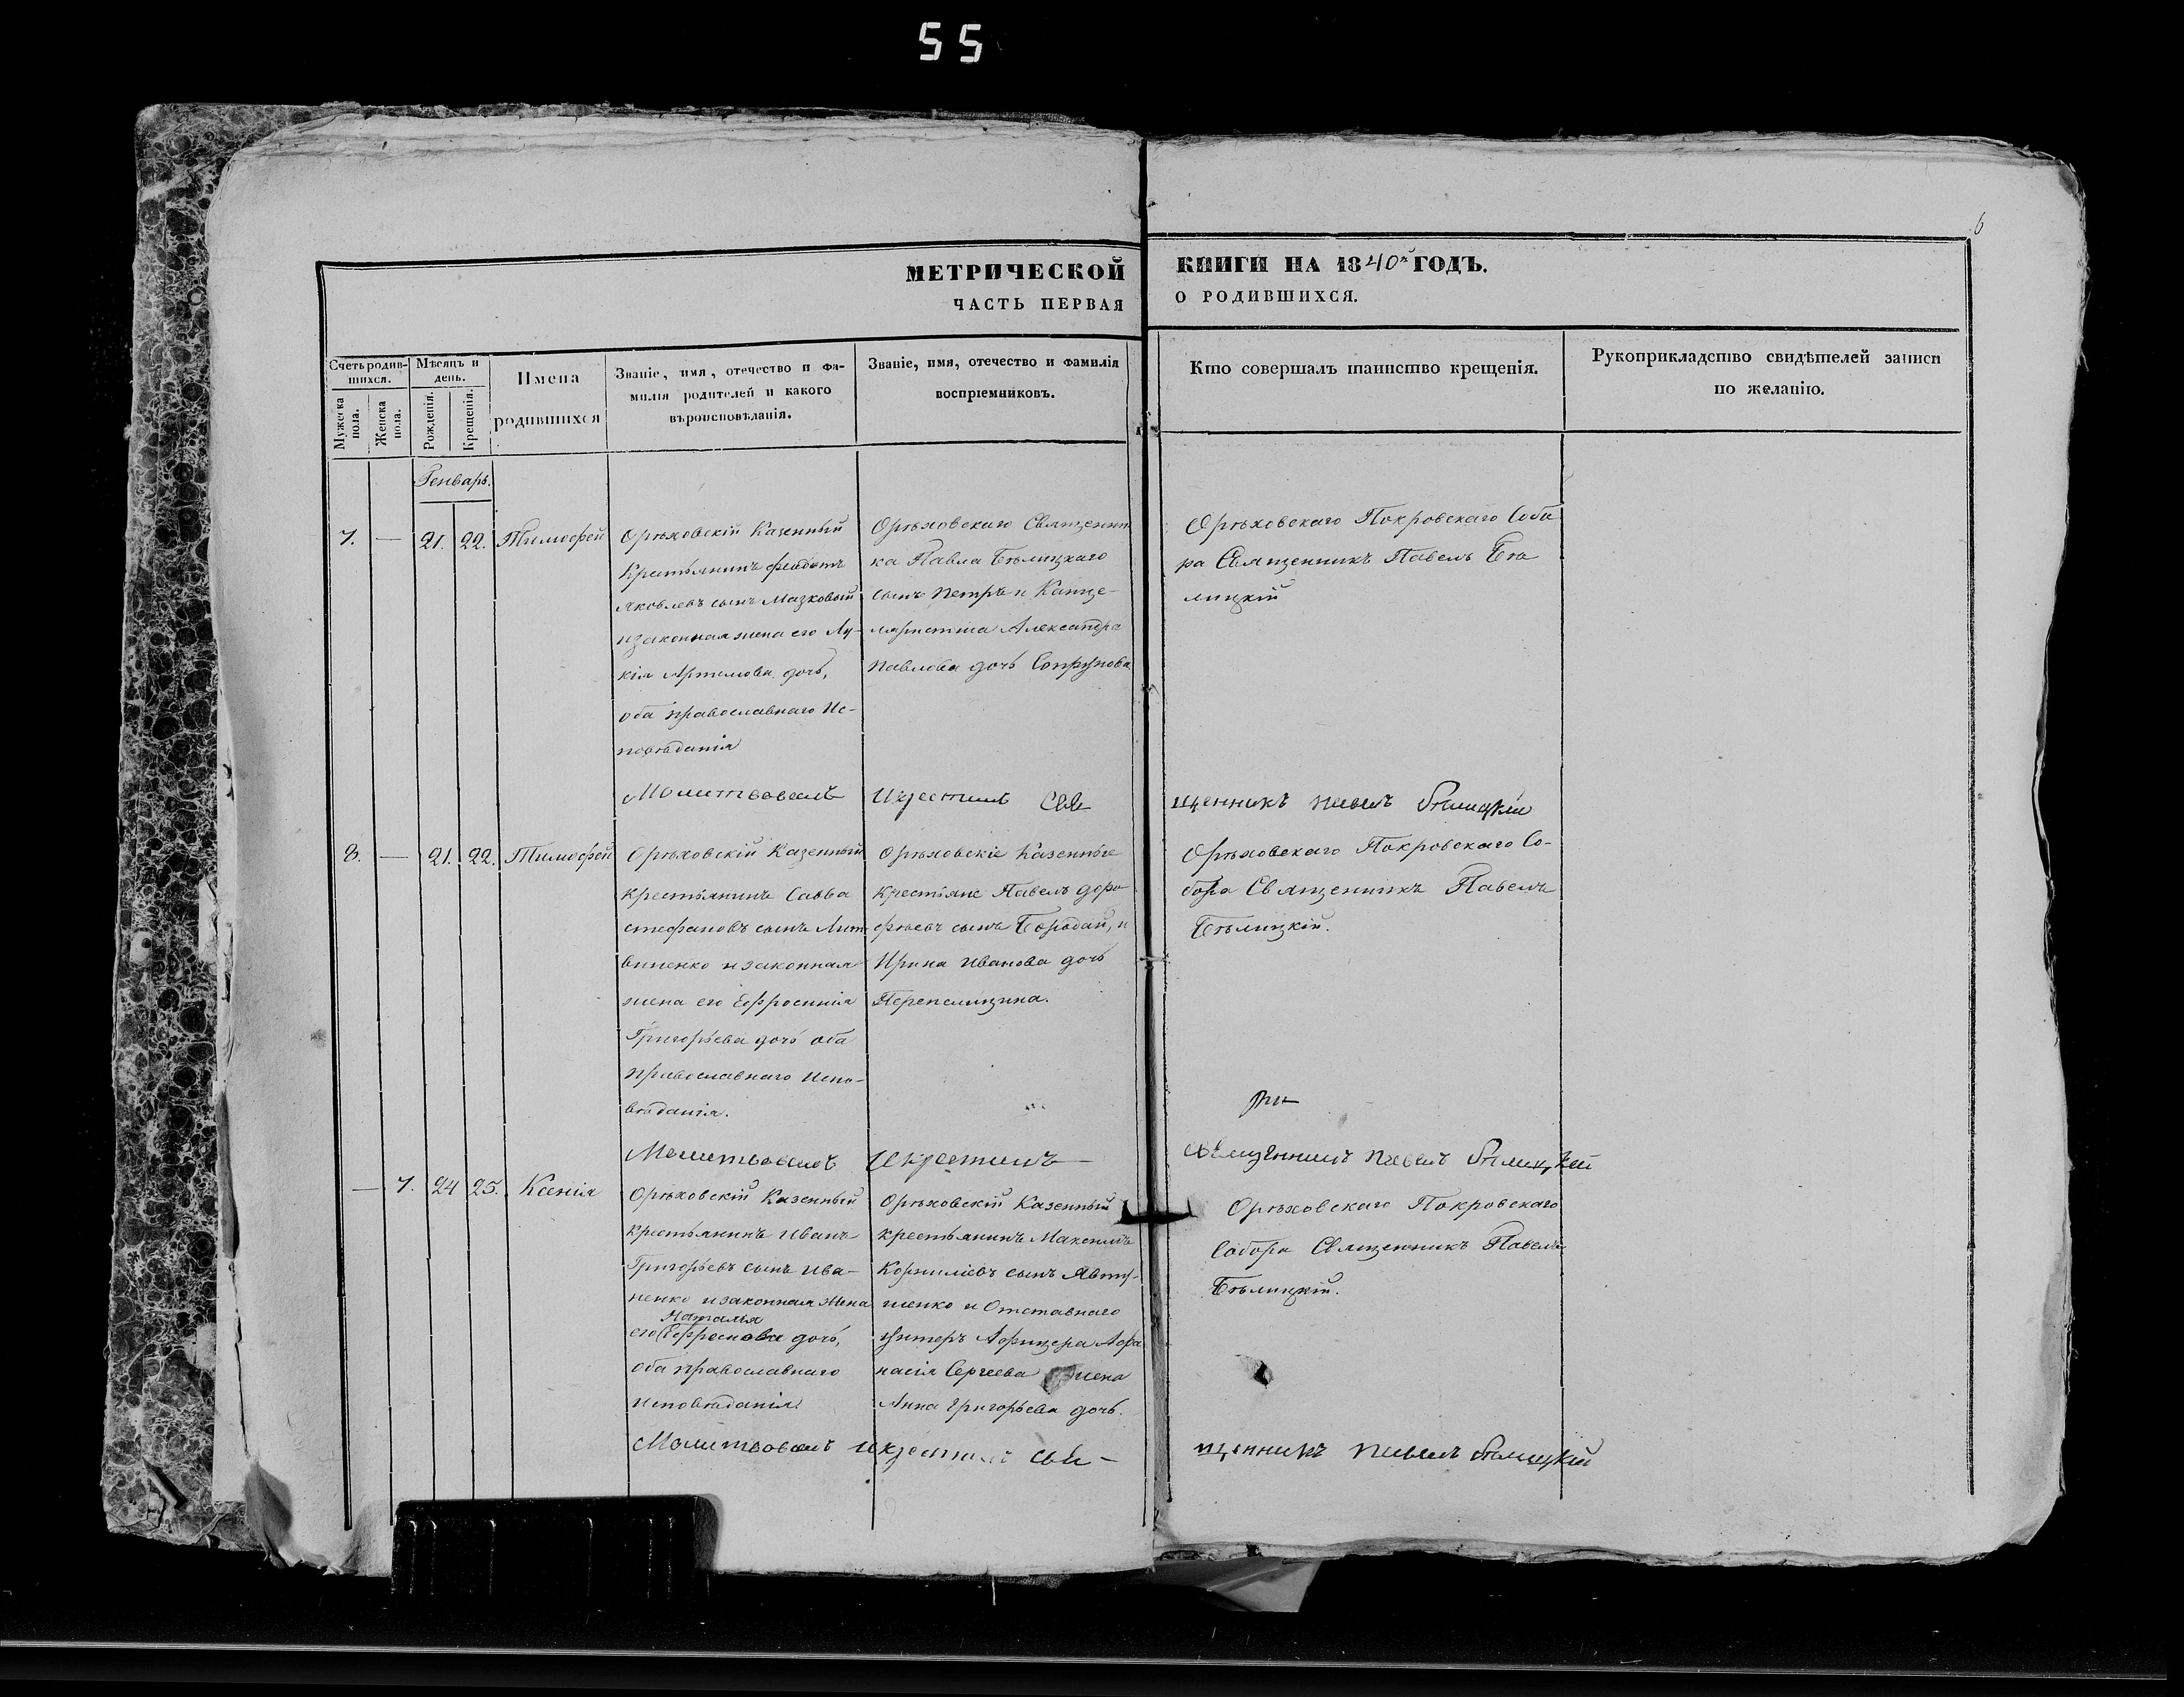 55
6
МЕТРИЧЕСКОЙ КНИГИ НА 1840й ГОДЪ.
ЧАСТЬ ПЕРВАЯ О РОДИВШИХСЯ.
Счетъ родив-
шихся.
Мужеска
пола.
Женска
пола.
Мѣсяцъ и
день.
Рожденія.
Крещенія.
Имена
родившихся
Званіе, имя, отечество и фа-
милія родителей и какого
вѣроисповѣданія.
Званіе, имя, отечество и фамилія
воспріемниковъ.
Кто совершалъ таинство крещенія.
Рукоприкладство свидѣтелей записи
по желанію.
Генварь.
7. — 21. 22. Тимофей
Орѣховскій Казенный
Крестьянинъ Феодотъ
Яковлевъ сынъ Мазковый
и законная жена его Лу-
кія Артемова дочь,
оба православнаго Ис-
повѣданія
Орѣховскаго Священни
ка Павла Бѣлицкаго
сынъ Петръ и Канце-
ляристша Александра
Павлова дочь Сопрунова
Орѣховскаго Покровскаго Собо
ра Священникъ Павелъ Бѣ
лицкій
Молитвовалъ и крестилъ Свя щенникъ Павелъ Бѣлицкій
8. — 21. 22. Тимофей
Орѣховскій Казенный
крестьянинъ Савва
стефановъ сынъ Лит-
виненко и законная
жена его Ефросинія
Григорьева дочь оба
православнаго Испо-
вѣданія.
Орѣховскіе Казенные
крестьяне Павелъ доро
фѣевъ сынъ Бородай, и
Ирина Иванова дочь
Перепелицина.
Орѣховскаго Покровскаго Со-
бора Священникъ Павелъ
Бѣлицкій.
Молитвовалъ и крестилъ — священникъ Павелъ Бѣлицкій
— 7. 24 25. Ксенія
Орѣховскій Казенный
крестьянинъ Иванъ
Григорьевъ сынъ Ива-
ненко и законная жена
Наталья
его Ефремова дочь,
оба православнаго
исповѣданія
Орѣховскій Казенный
крестьянинъ Максимъ
Корниліевъ сынъ Явту-
шенко и Отставнаго
унтеръ Афицера Афа
насія Сергеева жена
Анна Григорьева дочь.
Орѣховскаго Покровскаго
Собора Священникъ Павелъ
Бѣлицкій.
Молитвовалъ и крестилъ свя- щенникъ Павелъ Бѣлицкій